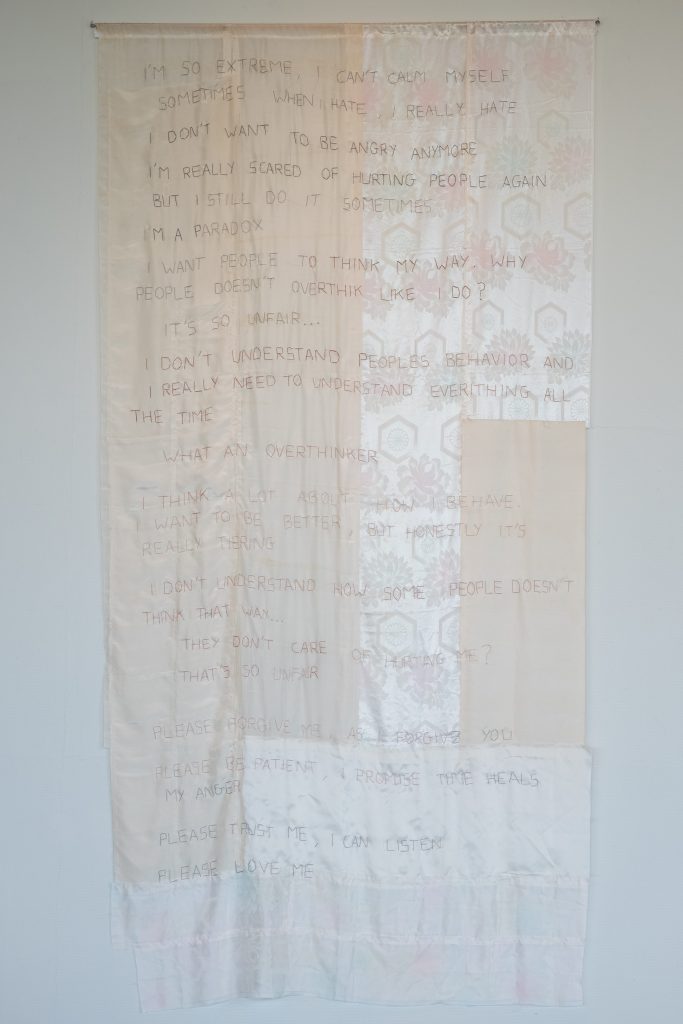 I'M SO EXTREME, I CAN'T CALM MYSELF
SOMETIMES WHEN I HATE, I REALLY HATE
I DON'T WANT TO BE ANGRY ANYMORE
I'M REALLY SCARED OF HURTING PEOPLE AGAIN
BUT I STILL DO IT SOMETIMES
I'M A PARADOX
I WANT PEOPLE TO THINK MY WAY. WHY
PEOPLE DOESN'T OVERTHIK LIKE I DO?
IT'S SO UNFAIR...
I DON'T UNDERSTAND PEOPLES BEHAVIOR AND
I REALLY NEED TO UNDERSTAND EVERITHING ALL
THE TIME
WHAT AN OVERTHINKER
I THINK A LOT ABOUT HOW I BEHAVE.
I WANT TO BE BETTER, BUT HONESTLY IT'S
REALLY TIERING
I DON'T UNDERSTAND HOW SOME PEOPLE DOESN'T
THINK THAT WAY...
THEY DON'T CARE OF HURTING ME?
THAT'S SO UNFAIR
PLEASE FORGIVE ME, AS I FORGIVE YOU
PLEASE BE PATIENT, I PROMISE TIME HEALS
MY ANGER
PLEASE TRUST ME, I CAN LISTEN
PLEASE LOVE ME